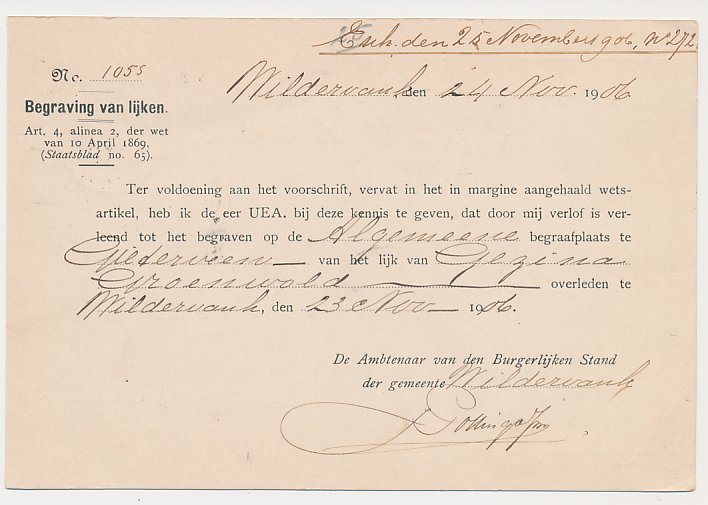 Exh. den 25 November 906, No 272.
No. 1055
Wildervank den 24 Nov. 1906
Begraving van lijken.
Art. 4, alinea 2, der wet
van 10 April 1869.
(Staatsblad no. 65).
Ter voldoening aan het voorschrift, vervat in het in margine aangehaald wets-
artikel, heb ik de eer UEA. bij deze kennis te geven, dat door mij verlof is ver-
leend tot het begraven op de Algemeene begraafplaats te
Gieterveen van het lijk van Gezina
Groenwold overleden te
Wildervank, den 23 Nov 1906.
De Ambtenaar van den Burgerlijken Stand
der gemeente Wildervank